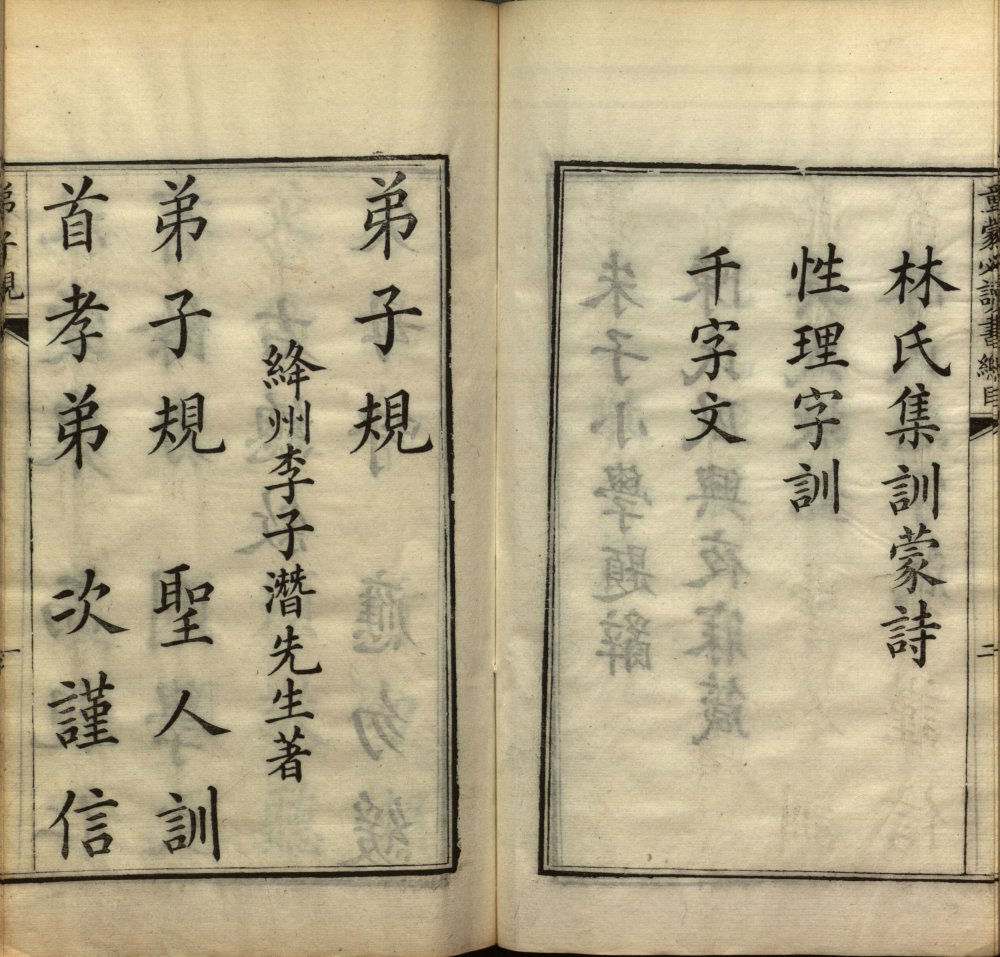 童蒙必讀書總目
二
林氏集訓蒙詩
性理字訓
千字文
弟子規
絳州李子潛先生著
弟子規 聖人訓
首孝弟 次謹信
弟子規
一